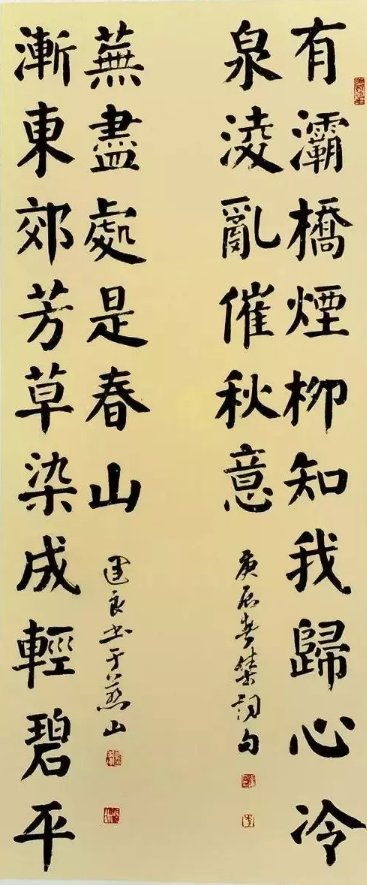 有灞橋煙柳知我歸心冷
泉淩亂催秋意
庚辰春集詞句
漸東郊芳草染成輕碧平
蕪盡處是春山
良書于燕山